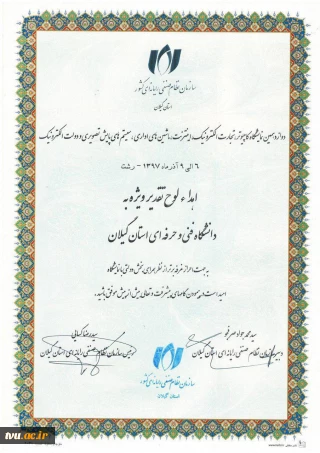 سازمان نظام صنفی رایانه‌ای کشور
استان گیلان
دوازدهمین نمایشگاه کامپیوتر، تجارت الکترونیک، اینترنت، ماشین های اداری، سیستم های پایش تصویری و دولت الکترونیک
۶ الی ۹ آذر ماه ۱۳۹۷ - رشت
اهداء لوح تقدیر ویژه به
دانشگاه فنی و حرفه ای استان گیلان
به جهت احراز غرفه برتر از نظر همراهی بخش دولتی با نمایشگاه
امید است در پیمودن گامهای پیشرفت و تعالی بیش از پیش موفق باشید.
سید محمد جواد صرفجو
دبیر سازمان نظام صنفی رایانه ای استان گیلان
سید رضا کمالی
رییس سازمان نظام صنفی رایانه ای استان گیلان
سازمان نظام صنفی رایانه‌ای کشور
استان گیلان
tvu.ac.ir